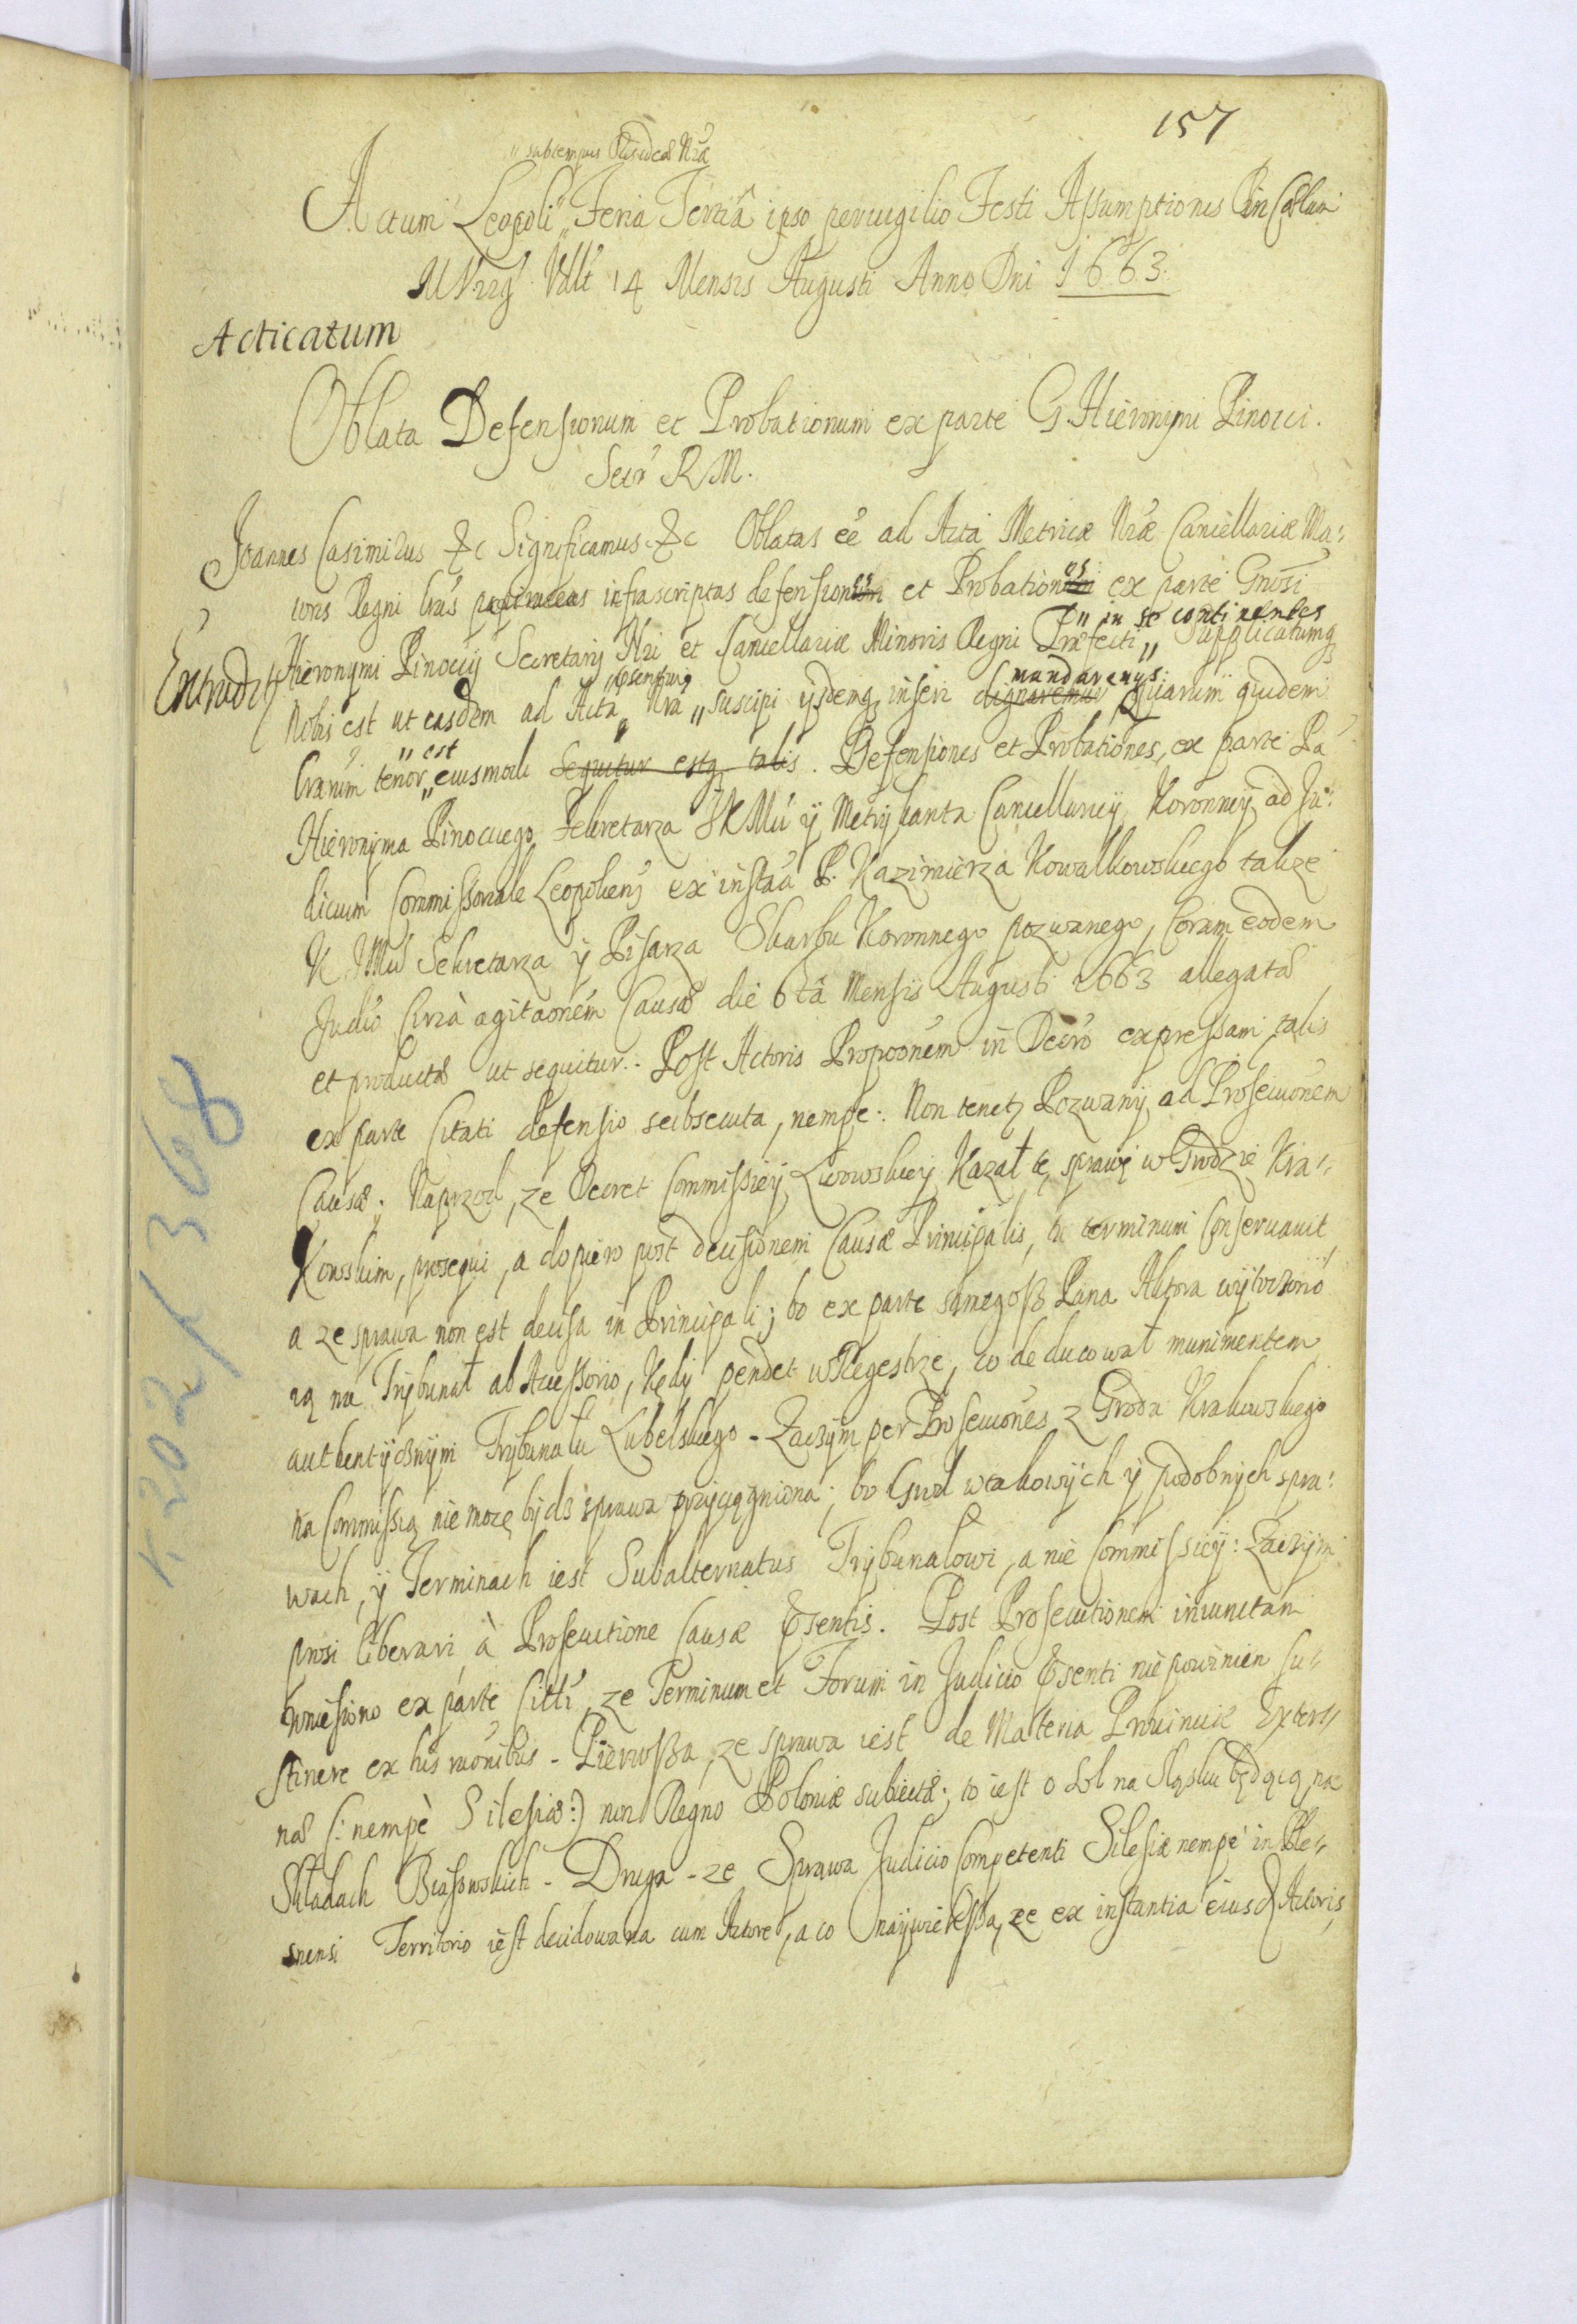 157
" subtempus Residae Nrae
Actum Leopoli " Feria Tertiâ ipso pervigilio Festi Assumptionis Beatissimae
M Virg Vdlt 14 Mensis Augusti Anno Dni 1663.
Acticatum
Oblata Defensionum et Probationum ex parte G. Hieronymi Pinocci.
Secr R M.
Joannes Casimirus &c Significamus &c Oblatas ee ad Acta Metricae Nrae Cancellariae Ma:
ioris Regni lras infrascriptas defensiones et Probationes ex parte Gnosi
" in se continentes
Hieronymi Pinoccij Secretarij Nri et Cancellariae Minoris Regni Praefecti " Supplicatumq
Extradit
psentium mandaremus
Nobis est ut easdem ad Acta " Nra " suscipi ijsdemq inseri dignaremur Quarum quidem
" est
lrarum tenor " eiusmodi sequitur estq talis. Defensiones et Probationes, ex parte Pa
Hieronyma Pinocciego Sekretarza JKMci ÿ Metrÿkanta Cancellarieÿ Koronneÿ ad Ju:
dicium Commissoriale Leopolien ex instaa P. Kazimierza Kowalkowskiego takze
K JMci Sekretarza ÿ Pisarza Skarbu Koronnego pozwanego, Coram eodem
Judio Circà agitaonem Causae die 6tâ Mensis Augusti 1663 allegatae
et productae ut sequitur. Post Actoris Propoonem in Decro expressam talis
ex parte Citati defensio subsecuta, nempe. Non tenetr Pozwanÿ ad Prosecuonem
Causae; Naprzod, ze Decret Commissieÿ Lwowskieÿ Kazał tę sprawę w Grodzie Kra:
Kowskim, prosequi, a dopiero post decisionem Causae Principalis, tu terminum conservavit
a ze sprawa non est decisa in Principali; bo ex parte samegosz Pana Aktora wÿtoczono
ią na Trÿbunał ab Accessorio, Kędÿ pendet w Regestrze, co deducował munimentem
authentÿcznÿm Trÿbunału Lubelskiego - Zaczÿm per Prosecuones z Grodu Krakowskiego
na Commissią nie może bÿdz sprawa przÿciągniona; bo Grod w takowÿch ÿ podobnÿch spra:
wach, ÿ Terminach iest Subalternatus Trÿbunałowi, a nie Commissieÿ: Zaczÿm
prosi liberari à Prosecutione Causae psentis. Post Prosecutionem iniunctam
wniesiono ex parte Citti, ze Terminum et Forum in Judicio psenti nie powinien su:
stinere ex his raonibus - Pierwsza, ze sprawa iest de Materia Provinciae Exter:
nae (: nempè Silesiae :) non Regno Poloniae subiectae; to iest o Sol na Sląsku będącą, na
Składach - Druga - ze Sprawa Judicio Competenti Silesiae nempe in Ple:
snensi Territorio iest decidowana cum Actore, a co naÿwiekssza, ze ex instantia eiusd Actoris,
K 202/ 368